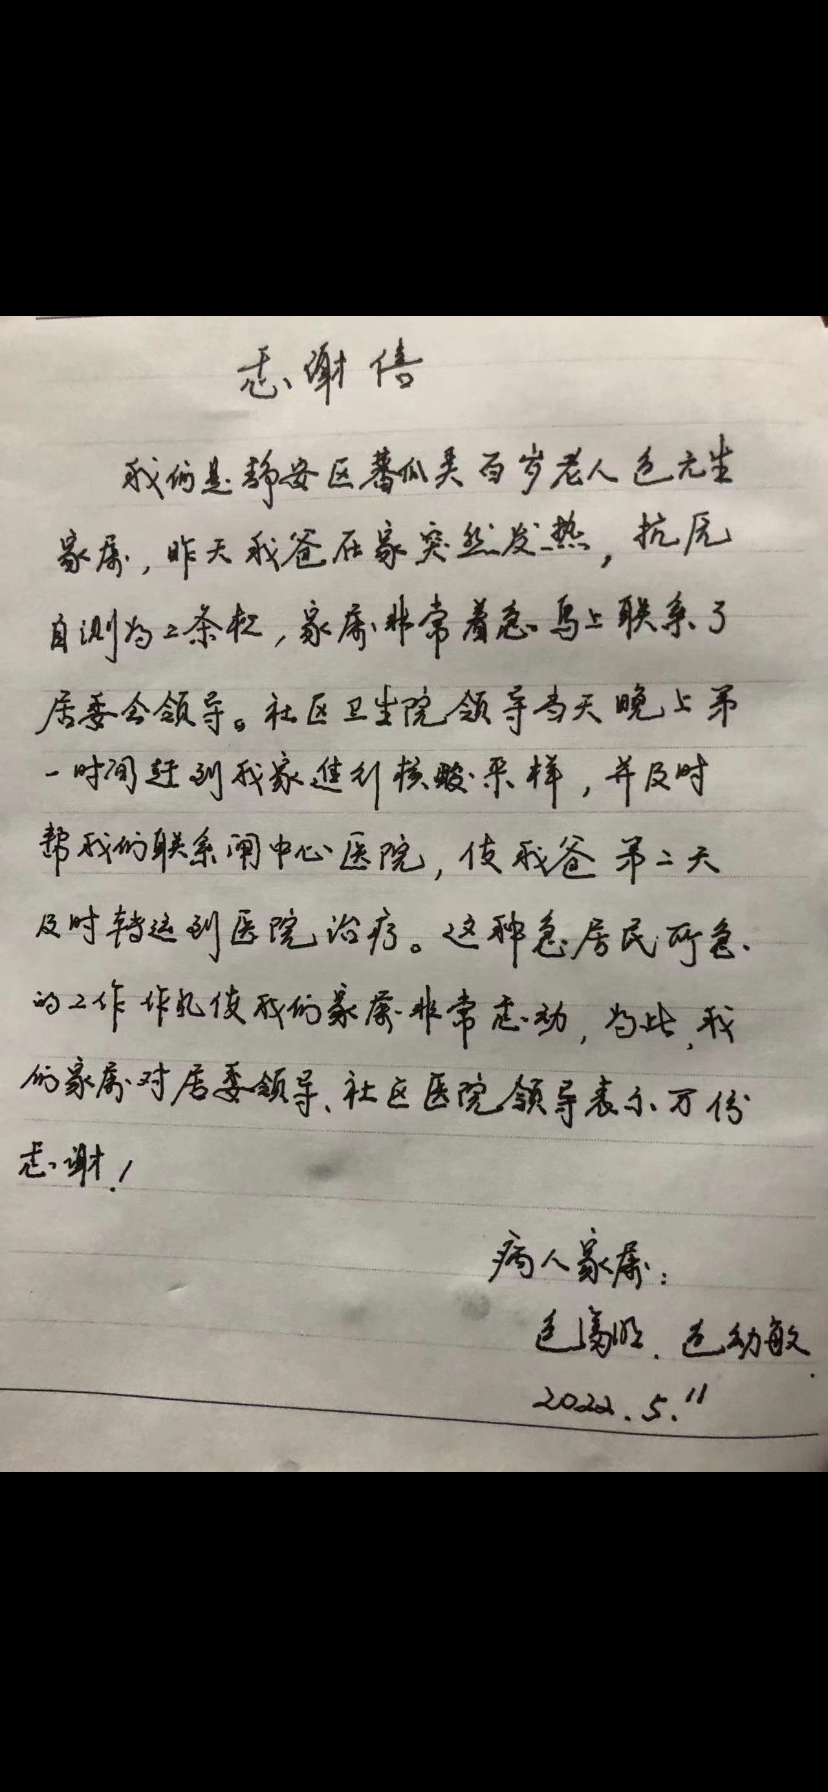 感谢信
我们是静安区蕃瓜弄百岁老人包元生
家属，昨天我爸在家突然发热，抗原
自测为2条杠，家属非常着急。马上联系了
居委会领导。社区卫生院领导当天晚上第
一时间赶到我家进行核酸采样，并及时
帮我们联系闸中心医院，使我爸第二天
及时转运到医院治疗。这种急居民所急
的工作作风使我们家属非常感动，为此，我
们家属对居委领导、社区医院领导表示万份
感谢！
病人家属：
包 包幼敏
2022.5.11